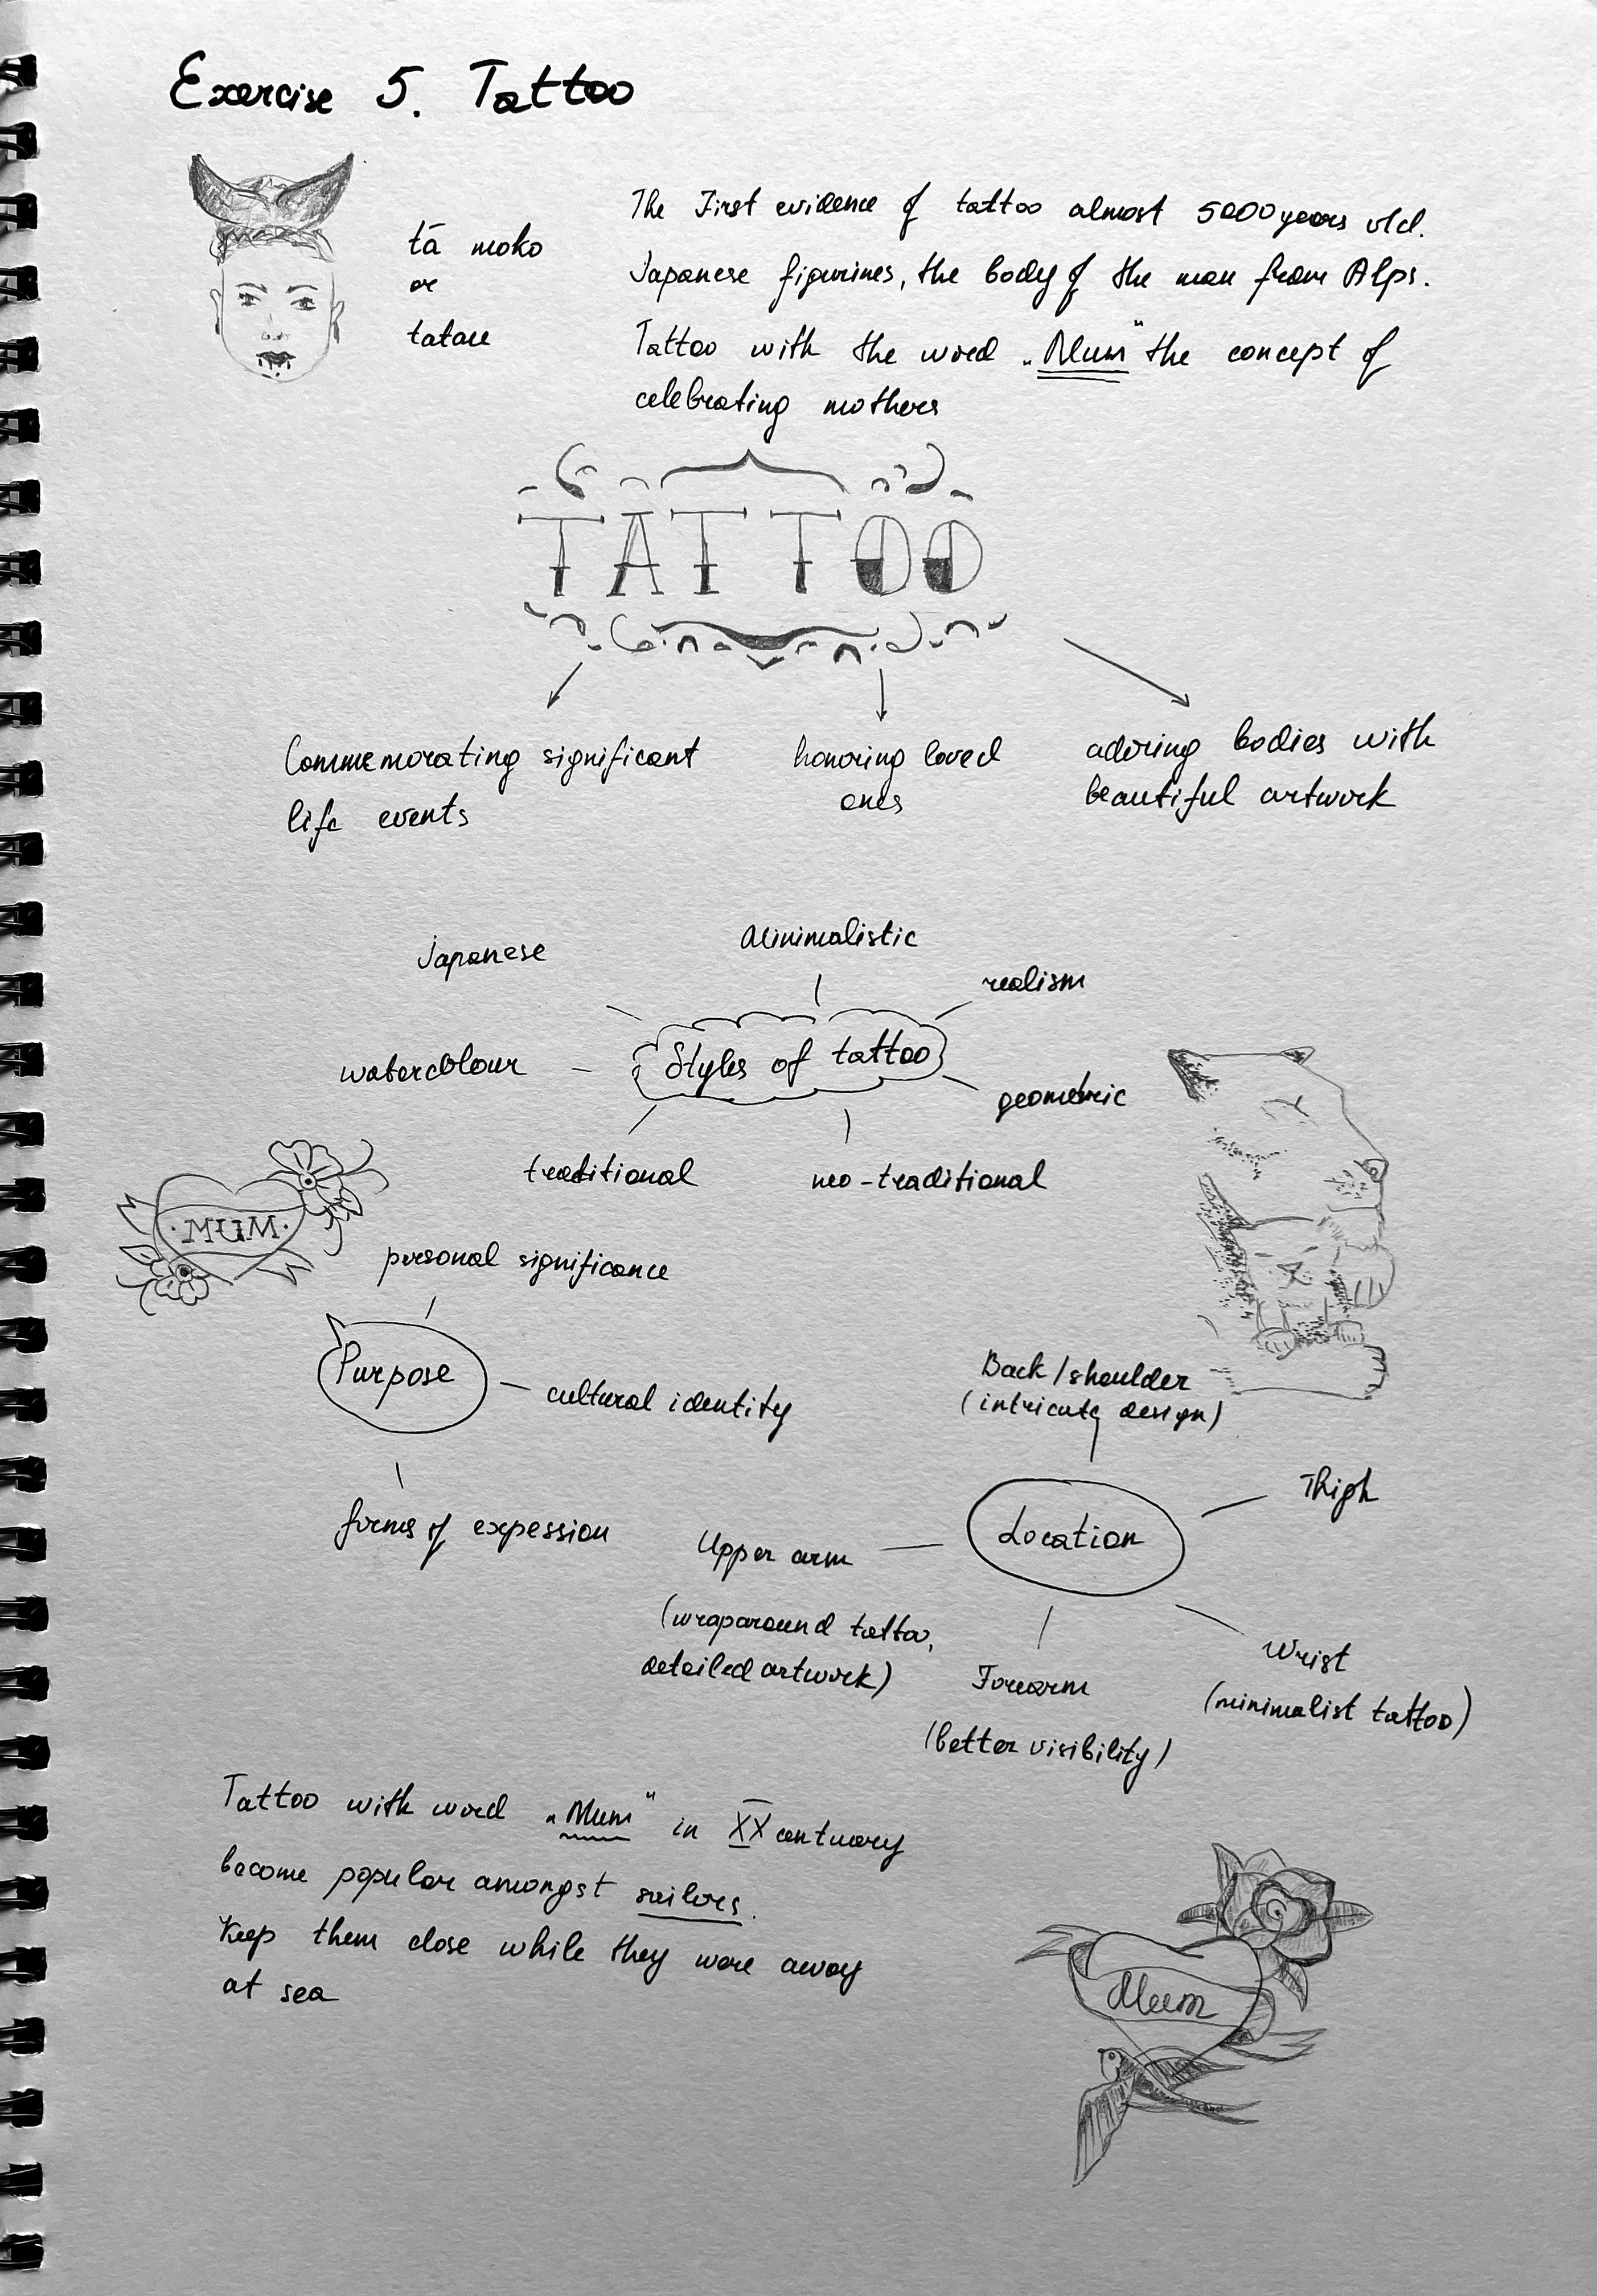 Exercise 5. Tattoo
tā moko
or
tatau
The First evidence of tattoo almost 5000 years old.
Japanese figurines, the body of the man from Alps.
Tattoo with the word „Mum" the concept of
celebrating mothers
TATTOO
Commemorating significant
life events
honoring loved
ones
adoring bodies with
beautiful artwork
Japanese
Minimalistic
realism
watercolour
Styles of tattoo
geometric
traditional
neo-traditional
MUM
personal significance
Purpose
cultural identity
forms of expession
Back/shoulder
(intricate design)
Thigh
Location
Upper arm
(wraparound tattoo,
detailed artwork)
Forearm
(better visibility)
Wrist
(minimalist tattoo)
Tattoo with word „Mum" in XX centuary
become popular amongst sailors.
Keep them close while they were away
at sea
Mum